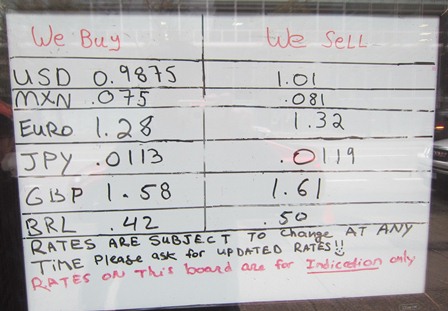 We Buy We SeLL
USD 0.9875 1.01
MXN .075 .081
EURO 1.28 1.32
JPY .0113 .0119
GBP 1.58 1.61
BRL .42 .50
RATES ARE SUBJECT TO change AT ANY
TIME Please ask for UPDATED RATES!!
RATES ON This board are for Indication only